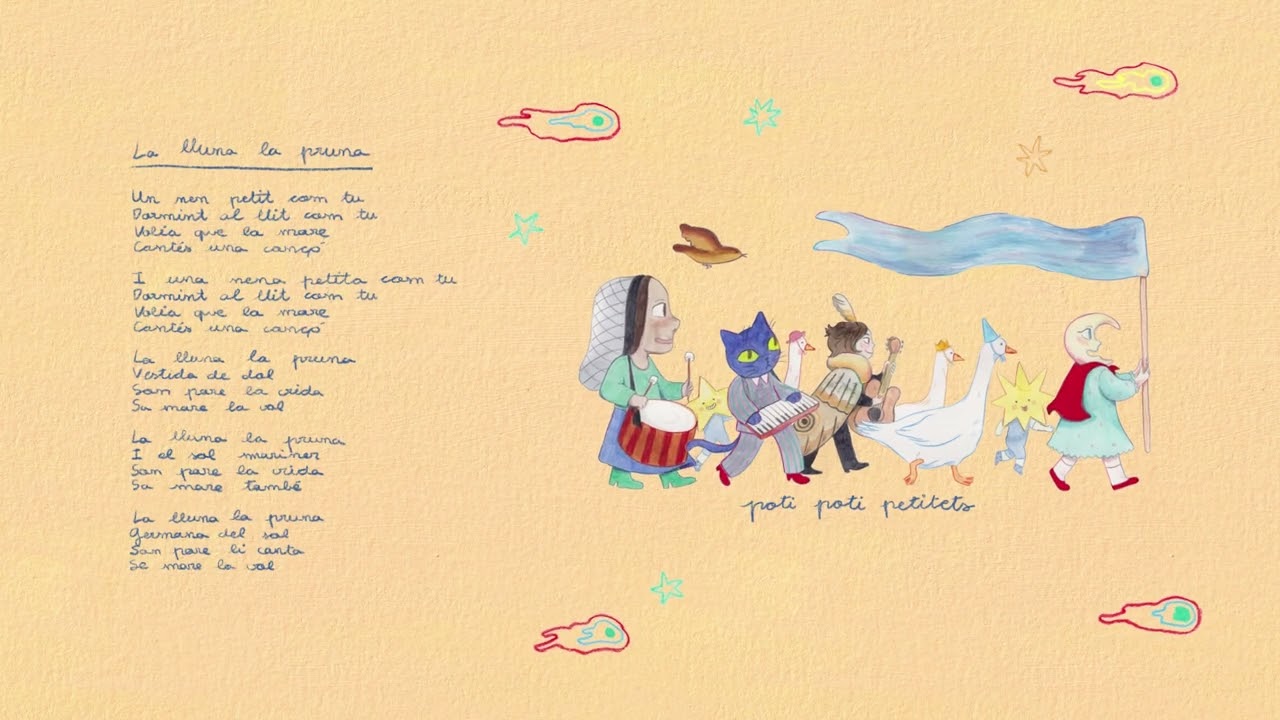 La lluna la pruna
Un nen petit com tu
Dormint al llit com tu
Volia que la mare
Cantés una cançó
I una nena petita com tu
Dormint al llit com tu
Volia que la mare
Cantés una cançó
La lluna la pruna
Vestida de dol
Son pare la crida
Sa mare la vol
La lluna la pruna
I el sol mariner
Son pare la crida
Sa mare també
La lluna la pruna
Germana del sol
Son pare li canta
Se mare la vol
poti poti petitets